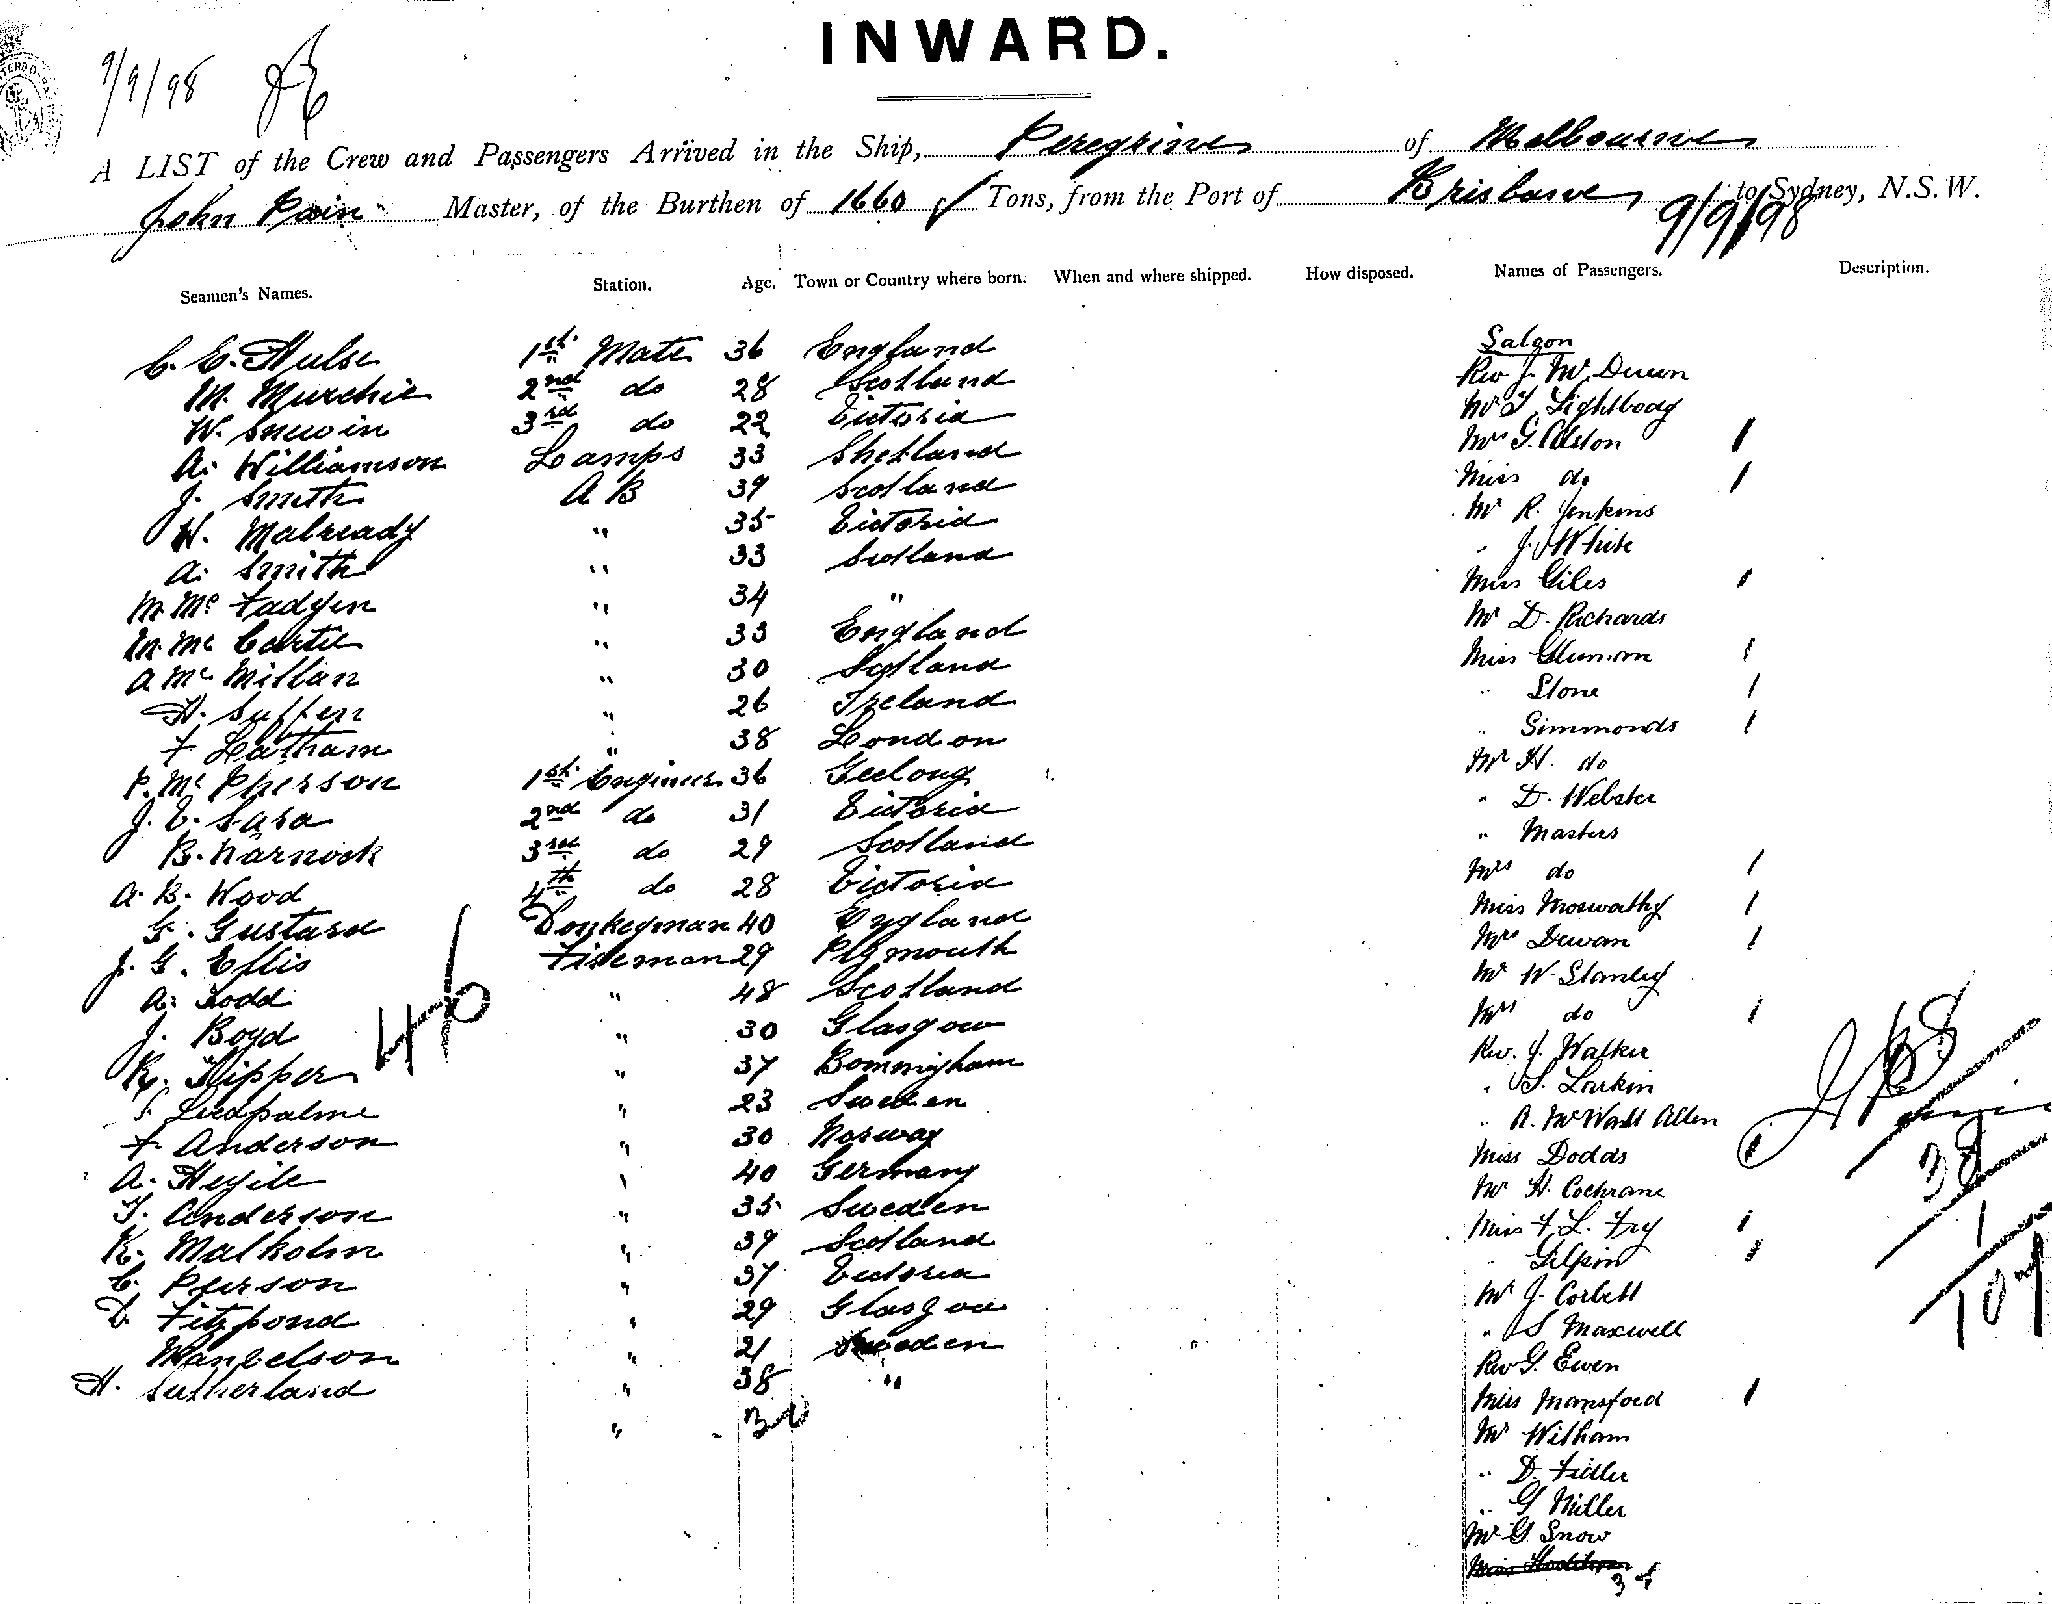 INWARD.
9/9/98
A LIST of the Crew and Passengers Arrived in the Ship, Peregrine of Melbourne
John Pain Master, of the Burthen of 1660 Tons, from the Port of Brisbane to Sydney, N.S.W.
9/9/98
Seamen's Names. Station. Age. Town or Country where born. When and where shipped. How disposed. Names of Passengers. Description.
C. E. Hulse 1st Mate 36 England
M. Murchie 2nd do 28 Scotland
W. Snewin 3rd do 22 Victoria
A. Williamson Lamps 33 Shetland
J. Smith A B 39 Scotland
W. Malready " 35 Victoria
A. Smith " 33 Scotland
M. Mc Fadyen " 34 "
M. Mc Cartie " 33 England
A Mc Millan " 30 Scotland
H. Suffern " 26 Ireland
F Latham " 38 London
P. Mc Pherson 1st Engineer 36 Geelong
J. E. Sara 2nd do 31 Victoria
B. Warnock 3rd do 29 Scotland
A. B. Wood 4th do 28 Victoria
G. Gustard Donkeyman 40 England
J. G. Ellis Fireman 29 Plymouth
A. Todd " 48 Scotland
J. Boyd " 30 Glasgow
K. Flipper " 37 Bommingham
Liedpalme " 23 Sweden
F. Anderson " 30 Norway
A. " 40 Germany
T. Anderson " 35 Sweden
K. Malkolm " 39 Scotland
C. Peerson " 37 Victoria
D. Fitzpond " 29 Glasgow
" 21 Sweden
H. Sutherland " 38 "
" 30
46
Saloon
Rev J. Mc
Mr T Lightbody
Mrs G. Alston 1
Miss do 1
Mr R. Jenkins
" J. White
Miss Giles 1
Mr D. Richards
Miss 1
" Stone 1
" Simmonds 1
Mr H. do
" D. Webster
" Masters
Mrs do 1
Miss Moswathy 1
Mrs Dewan 1
Mr W Stanley
Mrs do 1
Rev. J. Walker
" S. Larkin
" A. McWatt Allen
Miss Dodds 1
Mr H. Cochrane
Miss F. L. Fry 1
" Gilpin 1
Mr J. Corbett
" S Maxwell
Rev G. Ewen
Miss Mansford 1
Mr Witham
" D. Fidler
" G Miller
Mr G. Snow
34
68
38
1
107